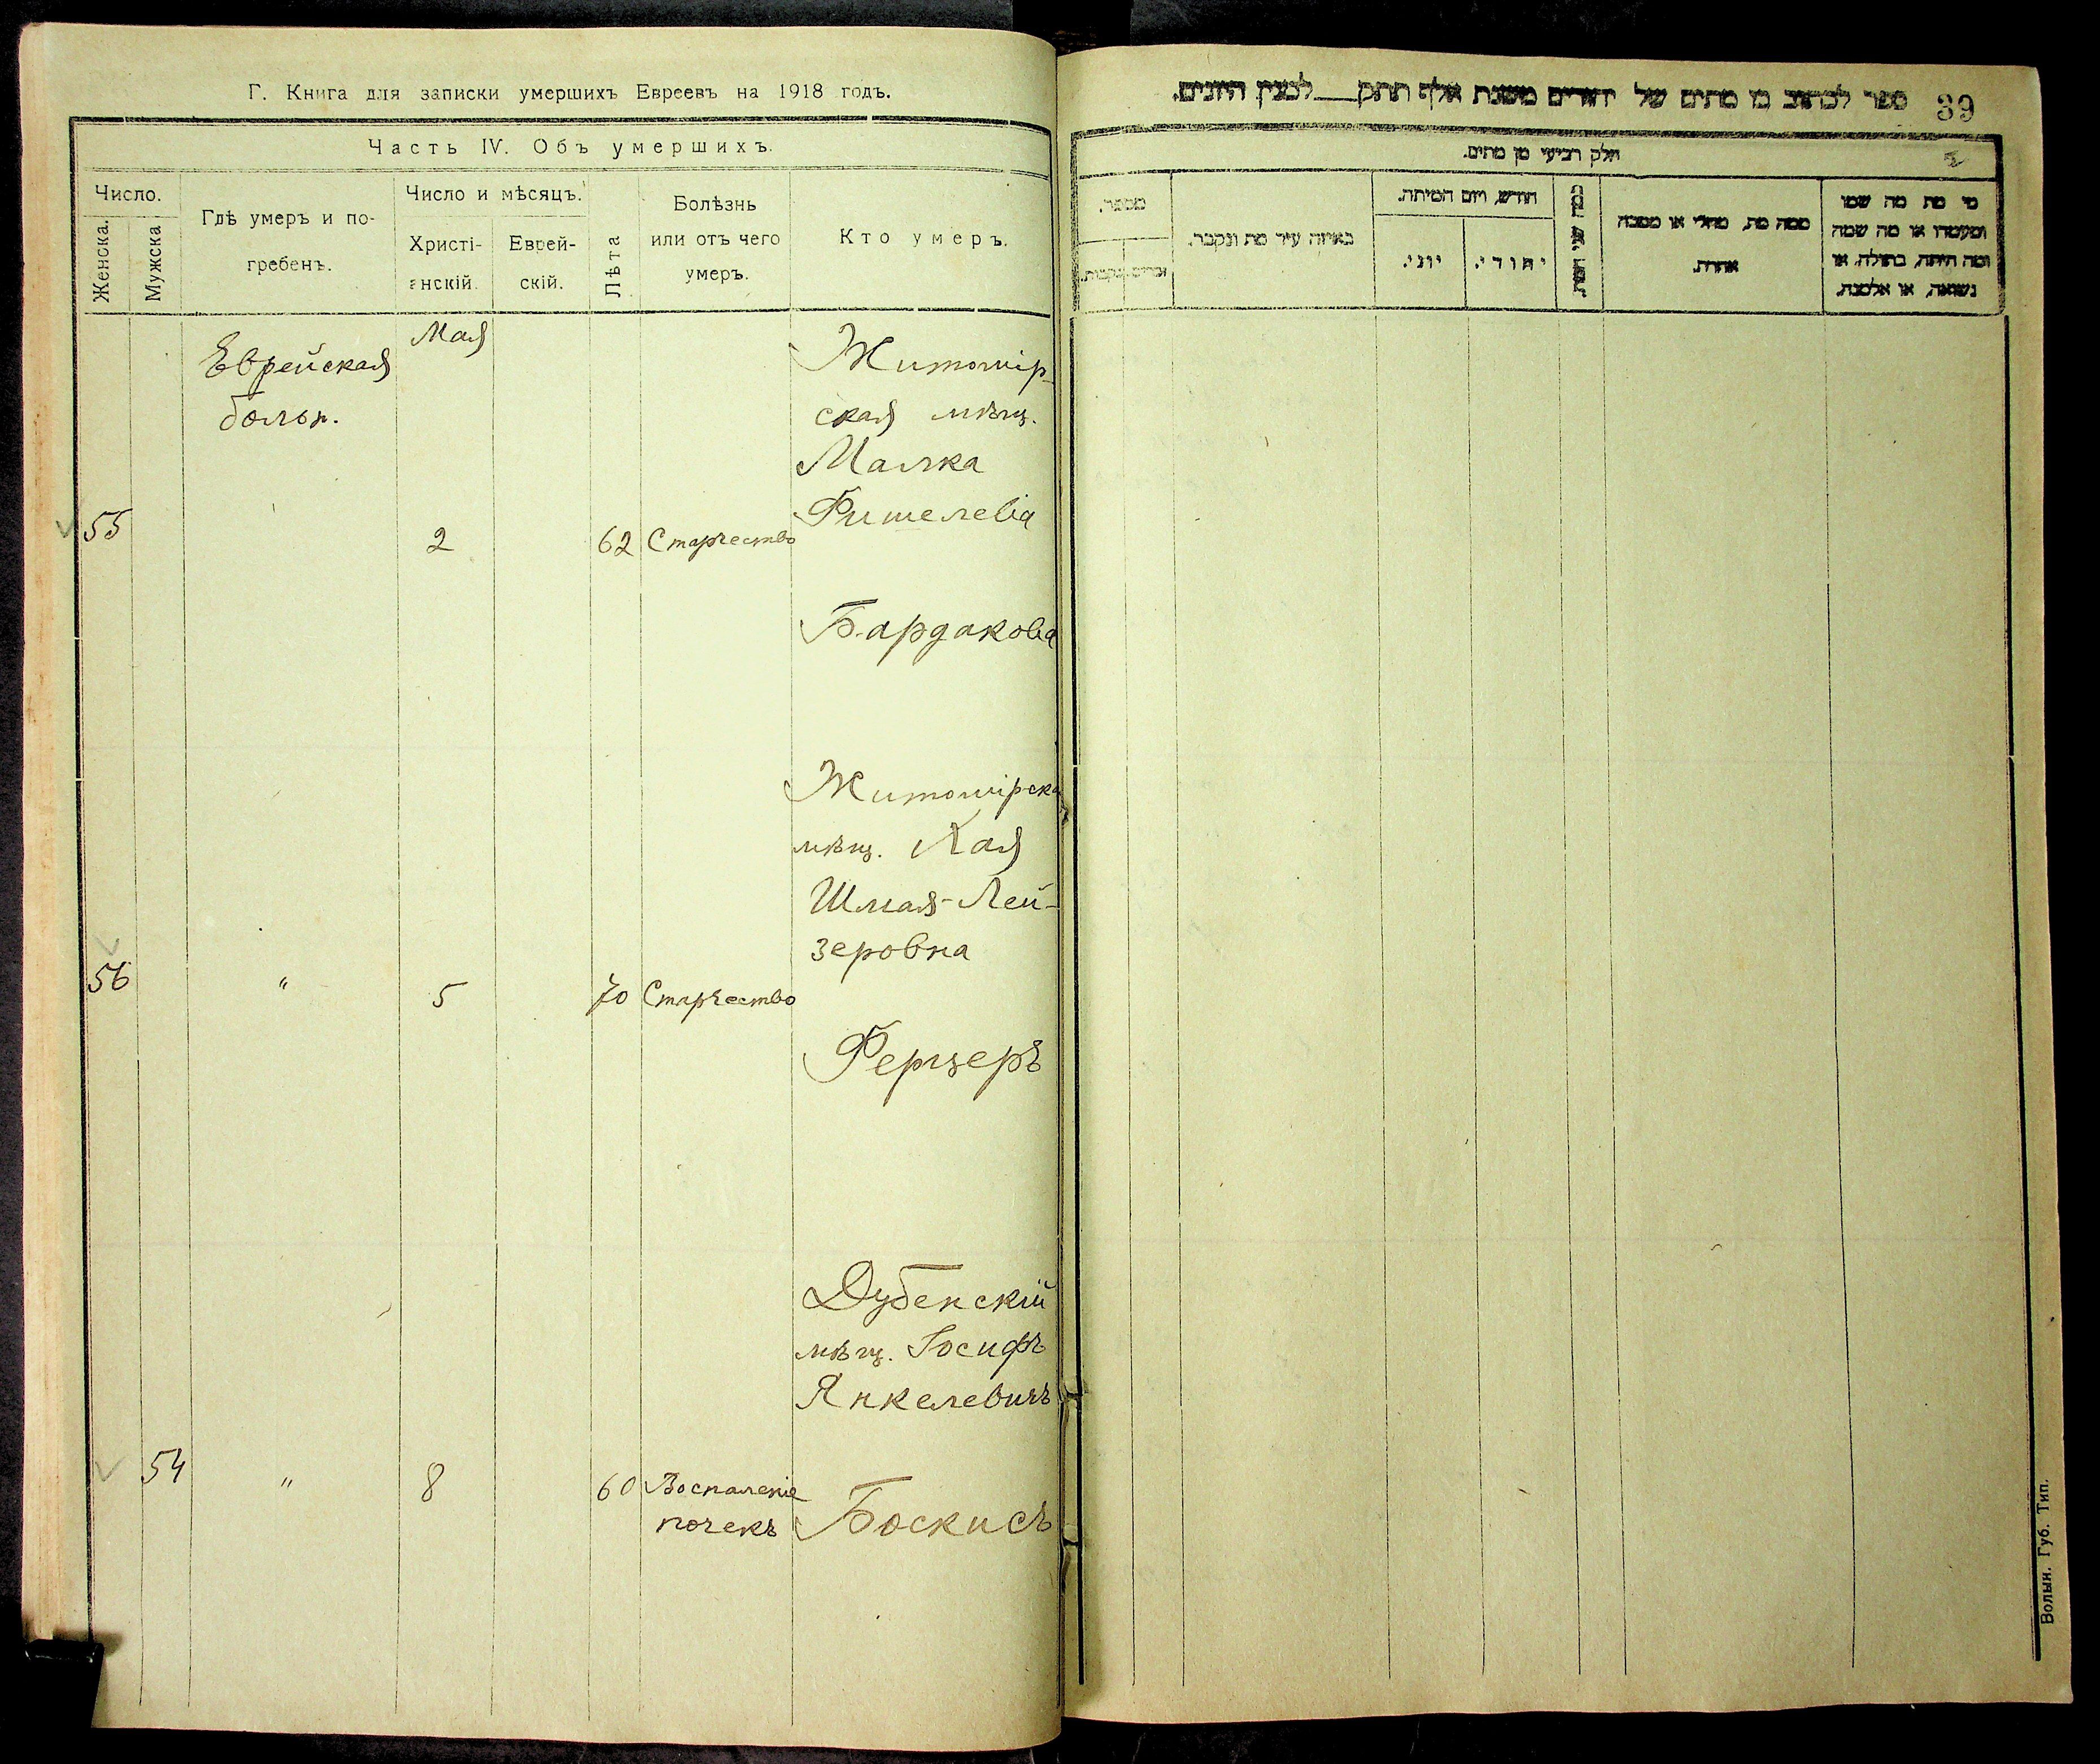 Г. Книга для записки умершихъ Евреевъ на 1918 годъ.
Часть IV. Объ умершихъ.
Число.
Женска.
Мужска
Гдѣ умеръ и по-
гребенъ.
Число и мѣсяцъ.
Христі-
анскій.
Еврей-
скій.
Лѣта
Болѣзнь
или отъ чего
умеръ.
Кто умеръ.
Мая
Еврейская
больн.
Житомір-
ская мѣщ.
Малка
Фишелева
55
2
62
Старчество
Бардакова
Житомірска
мѣщ. Хая
Шмая-Лей-
зеровна
56
"
5
70
Старчество
Ферцеръ
Дубенскій
мѣщ. Іосифъ
Янкелевичъ
54
"
8
60
Воспаленіе
почекъ
Боскисъ
ספר לכתוב בו מתים של יהודים משנת אלף תתק לмנין היונים.
39
חלק רביעי מן מתים.
מספר.
זכרים
נקבות.
באיזה עיר מת ונקבר.
חודש ויום המיתה.
יוני.
יהודי.
ממה מת, מחלי או מסבה
אחרת.
מי מת מה שמו
ומעמדו או מה שמה
ומה היתה, בתולה, או
נשואה, או אלמנה.
Волын. Губ. Тип.